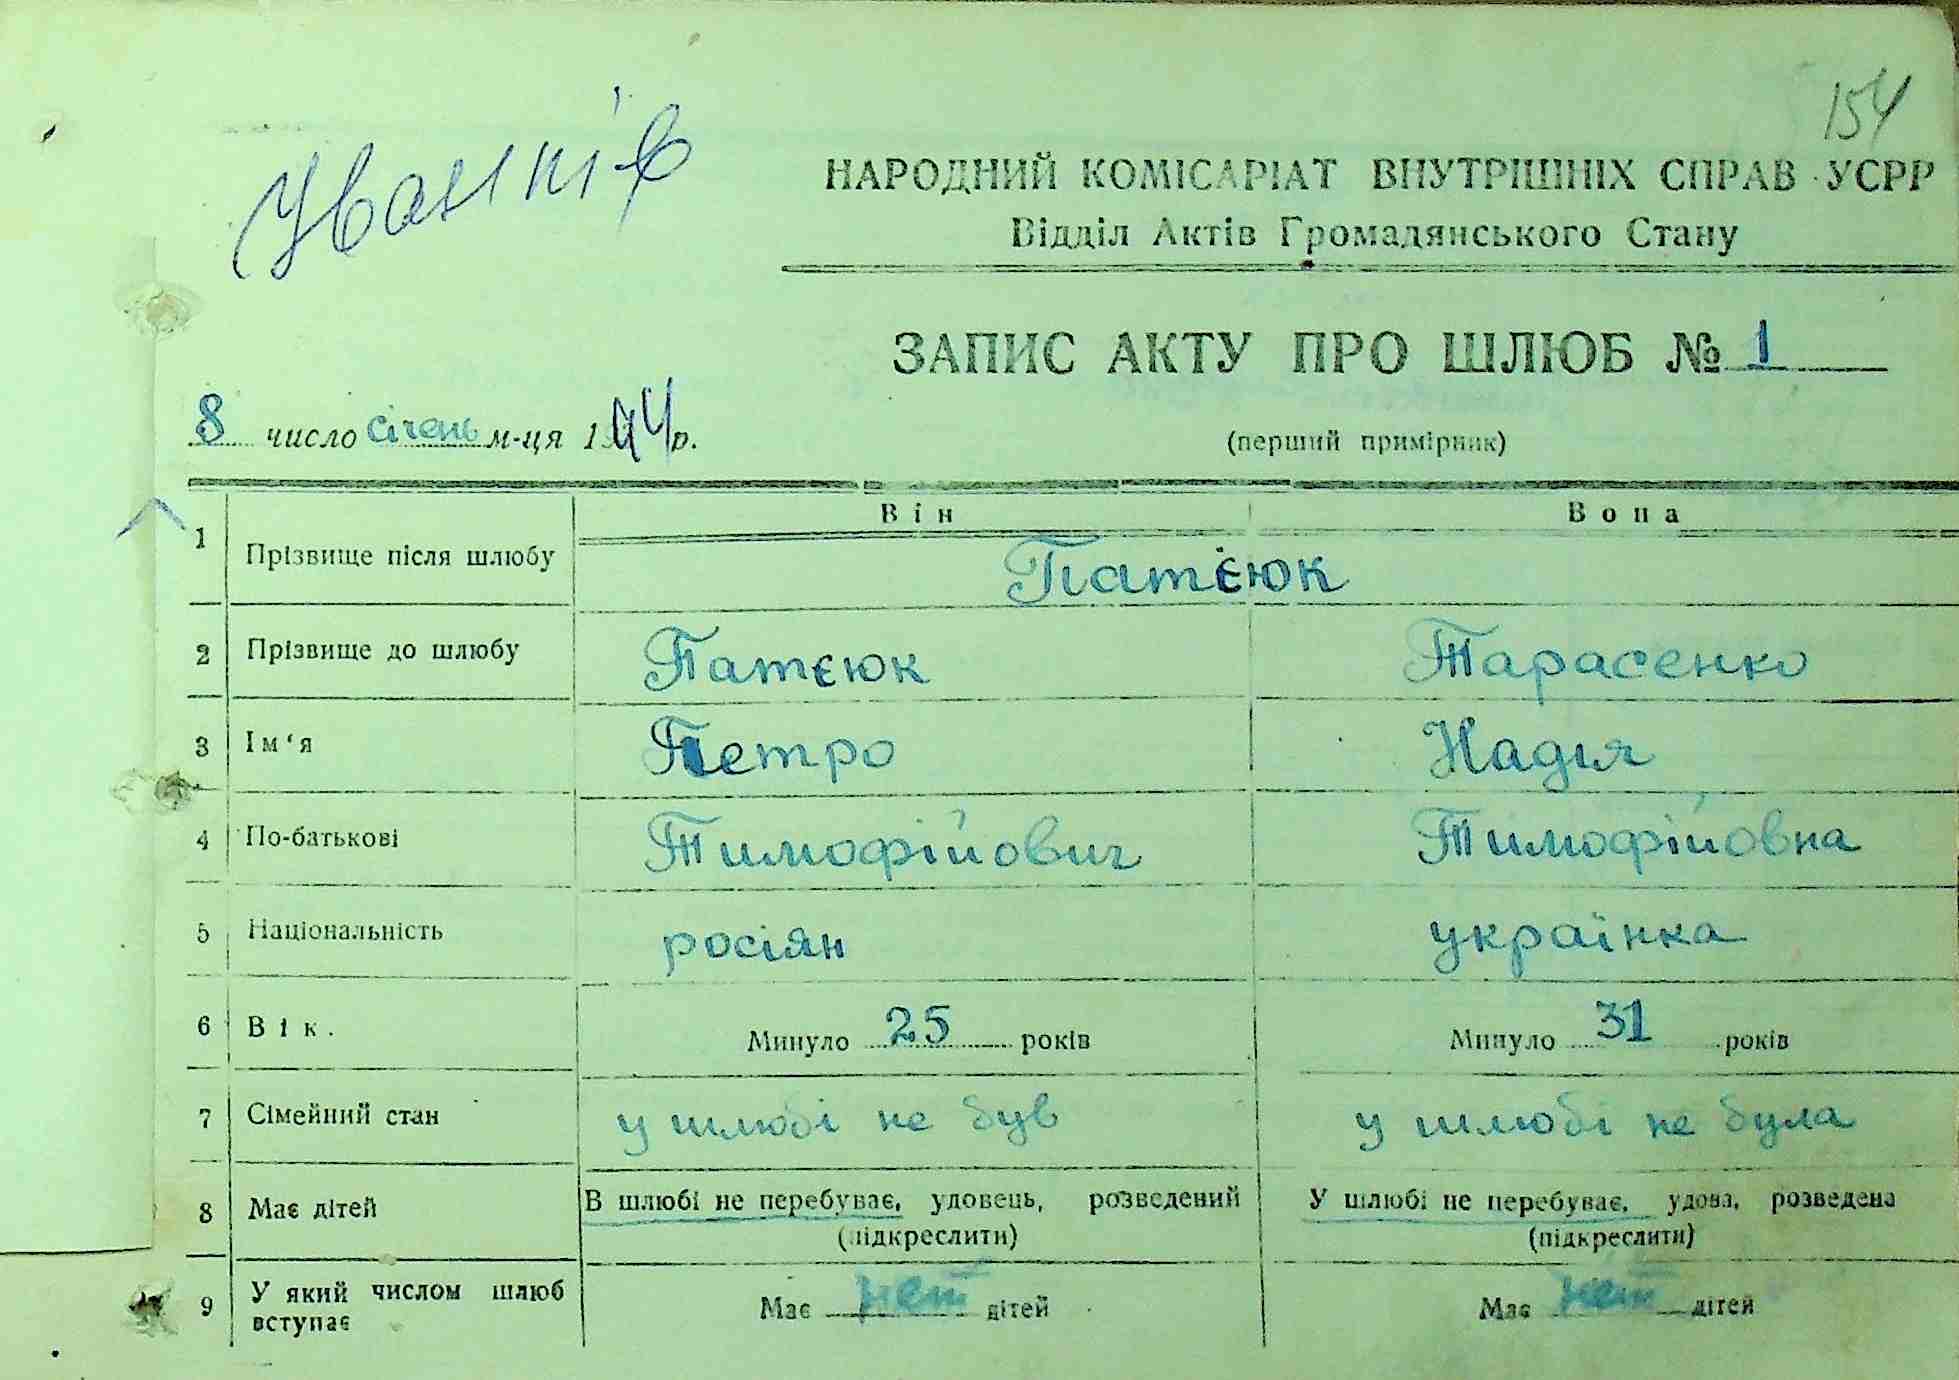 154
Іванків
НАРОДНИЙ КОМІСАРІАТ ВНУТРІШНІХ СПРАВ УСРР
Відділ Актів Громадянського Стану
ЗАПИС АКТУ ПРО ШЛЮБ № 1
8 число січень м-ця 1944р.
(перший примірник)
Він Вона
1 Прізвище після шлюбу Патєюк
2 Прізвище до шлюбу Патєюк Тарасенко
3 Ім‘я Петро Надія
4 По-батькові Тимофійович Тимофійовна
5 Національність росіян українка
6 Вік. Минуло 25 років Минуло 31 років
7 Сімейний стан у шлюбі не був у шлюбі не була
8 Має дітей В шлюбі не перебуває, удовець, розведений У шлюбі не перебуває, удова, розведена
(підкреслити) (підкреслити)
9 У який числом шлюб вступає Має нет дітей Має нет дітей